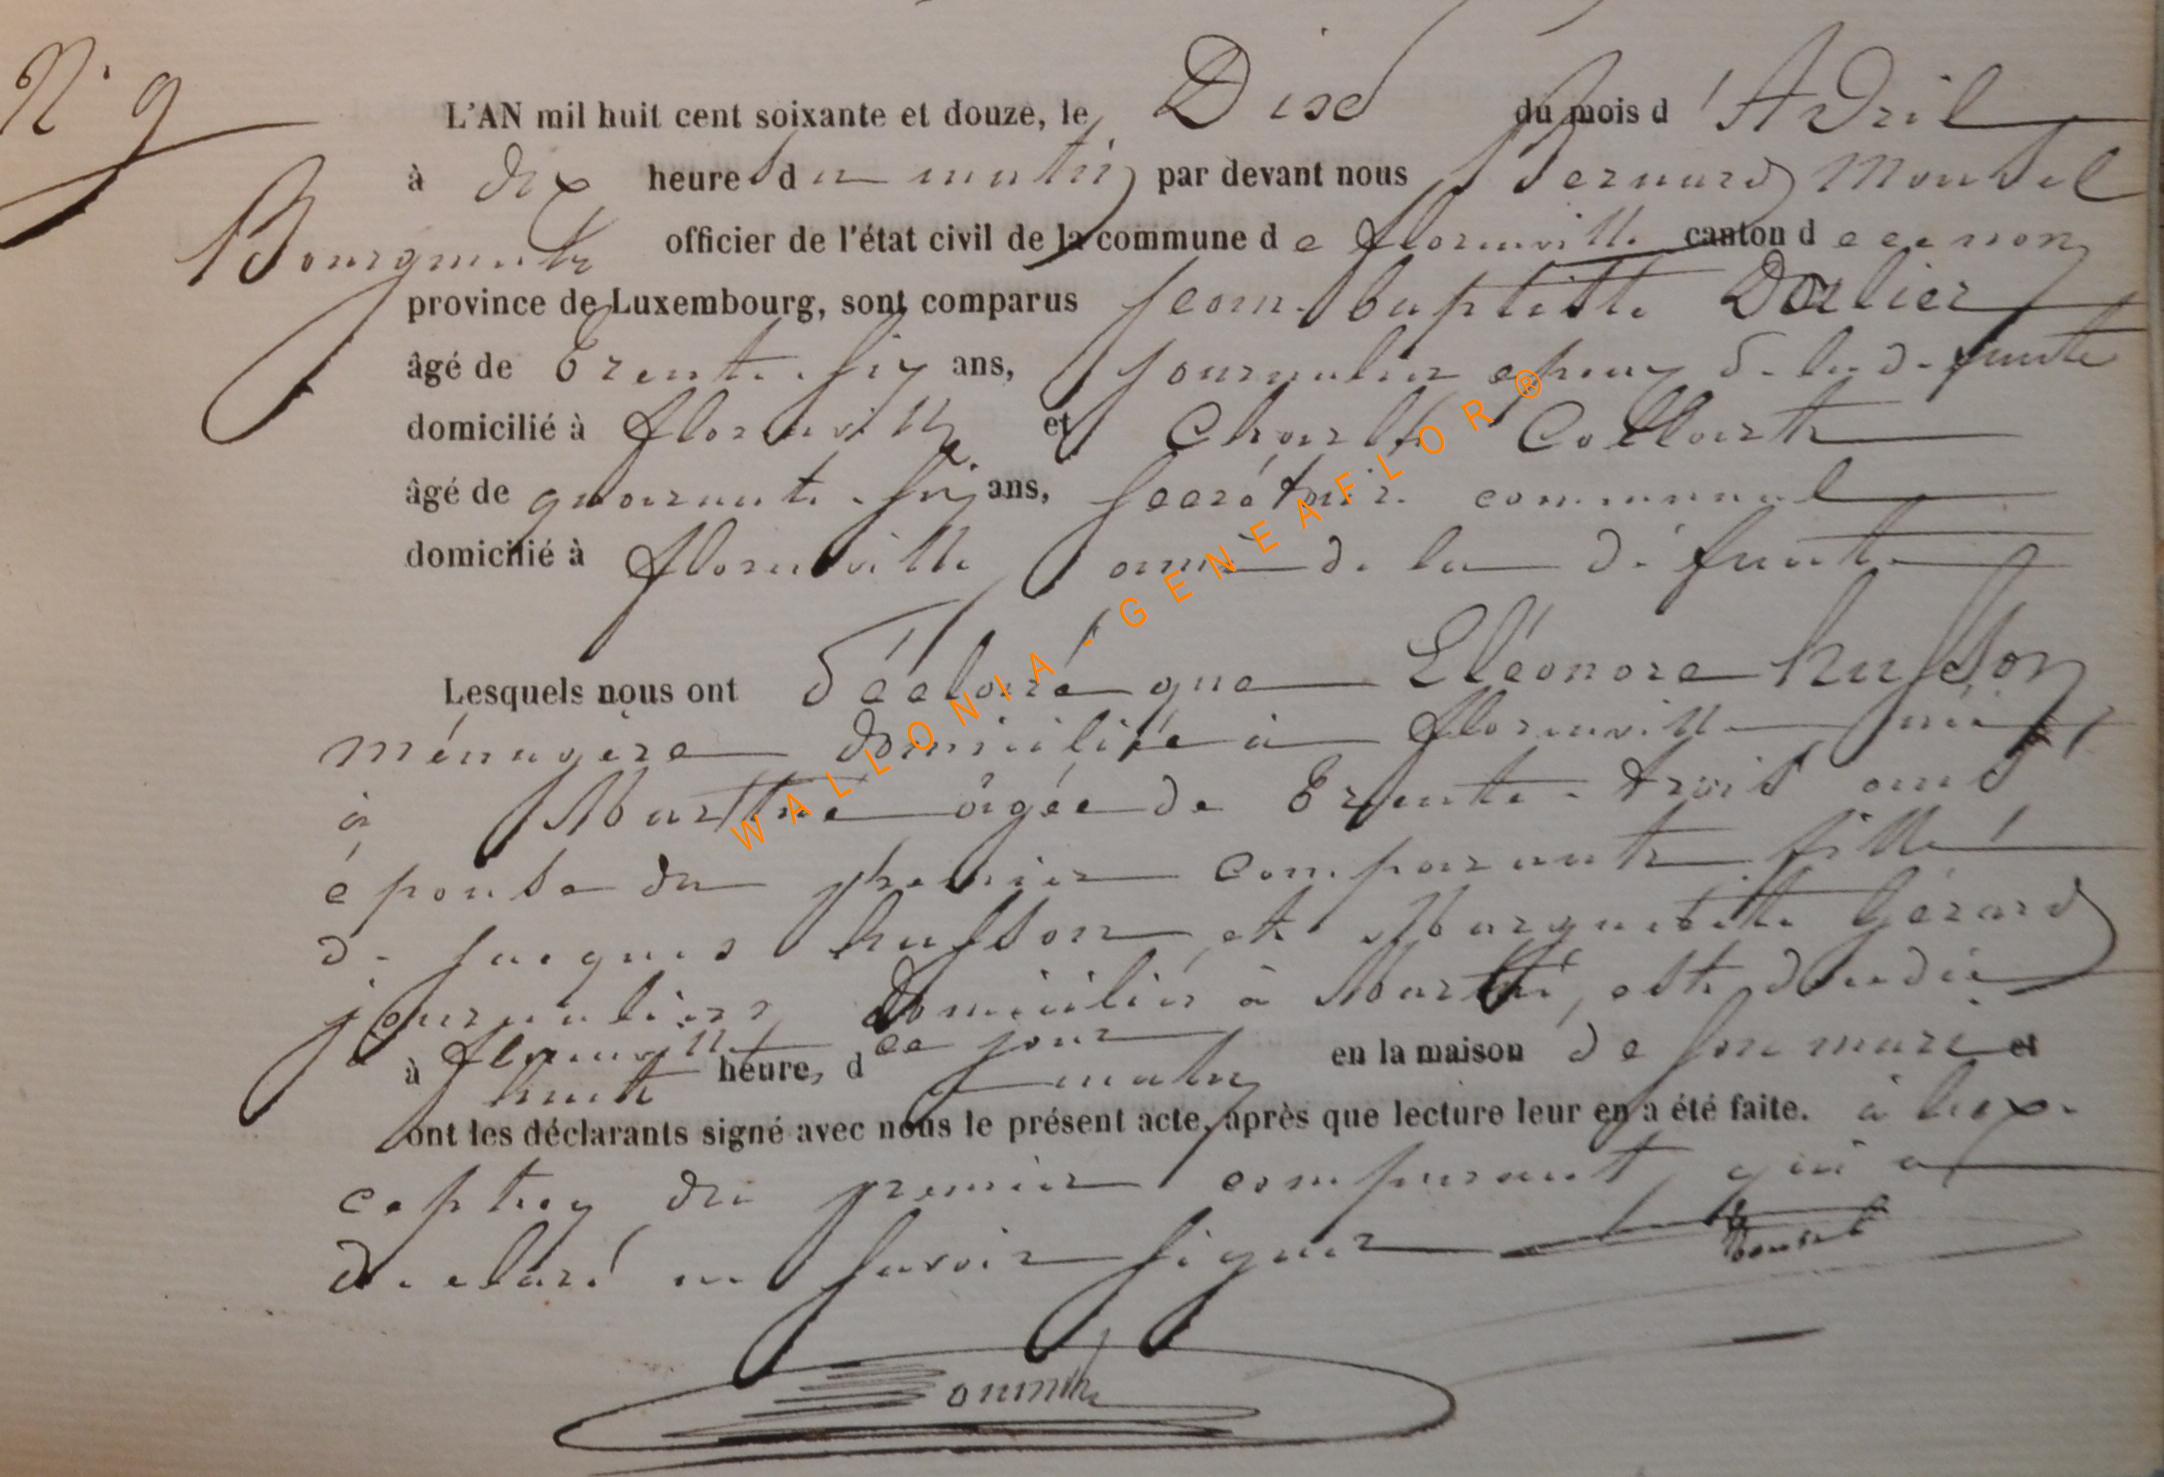 N° 9
L'AN mil huit cent soixante et douze, le Dix du mois d'Avril
à dix heures du matin par devant nous Bernard Monsel
Bourgmestre officier de l'état civil de la commune de florenville canton de
province de Luxembourg, sont comparus Jean-baptiste Dalier
âgé de trente-six ans, journalier époux de la défunte
domicilié à florenville et Charles Collart
âgé de quarante-six ans, secrétaire communal
domicilié à florenville ami de la défunte
Lesquels nous ont déclaré que Eléonore husson
ménagère domiciliée à florenville née
à âgée de trente-trois ans
épouse du premier comparant fille
de Jacques husson et Marguerite Gérard
journaliers domiciliés à est décédée
à florenville ce jour
huit heure, d matin en la maison de son mari et
ont les déclarants signé avec nous le présent acte, après que lecture leur en a été faite. à l'ex-
ception du premier comparant qui a
déclaré ne savoir signer
Monsel
WALLONIA-GENEAFLOR®